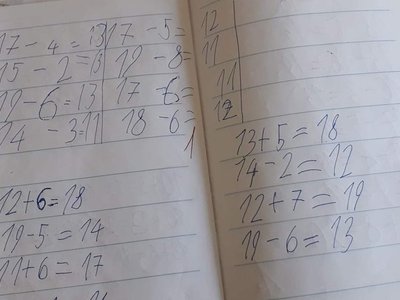 17 - 4 = 13
15 - 2 = 13
19 - 6 = 13
14 - 3 = 11
17 - 5 =
19 - 8 =
17 - 6 =
18 - 6 =
1
12 + 6 = 18
19 - 5 = 14
11 + 6 = 17
12
11
11
12
13 + 5 = 18
14 - 2 = 12
12 + 7 = 19
19 - 6 = 13